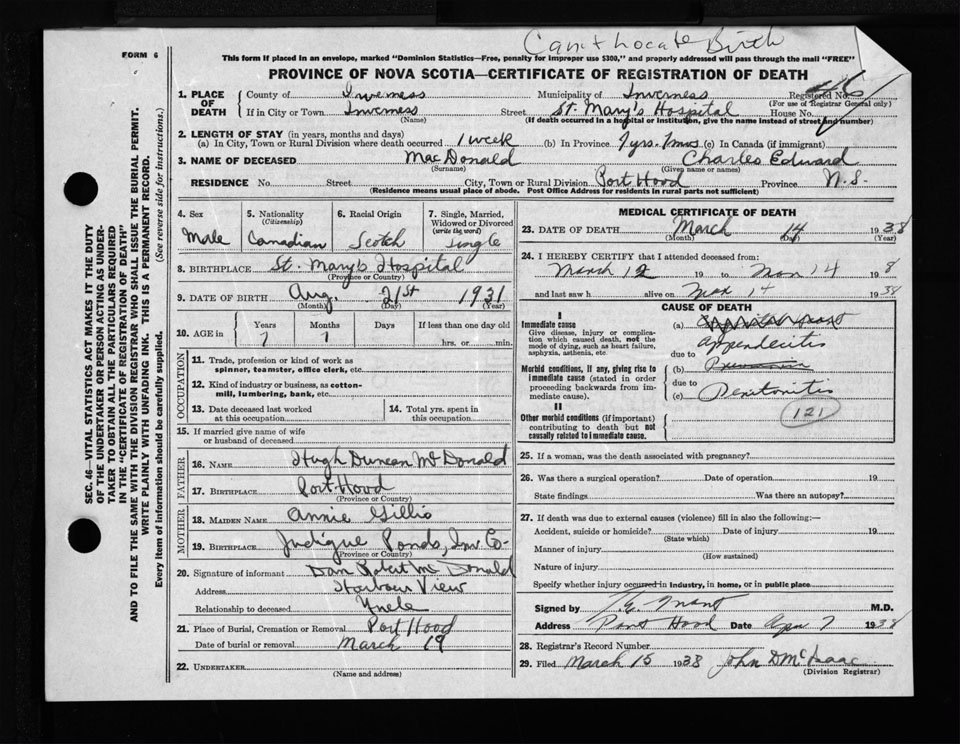 Can't locate Birth
FORM 6
This form if placed in an envelope, marked "Dominion Statistics—Free, penalty for improper use $300," and properly addressed will pass through the mail "FREE"
PROVINCE OF NOVA SCOTIA—CERTIFICATE OF REGISTRATION OF DEATH
SEC. 46—VITAL STATISTICS ACT MAKES IT THE DUTY
OF THE UNDERTAKER OR PERSON ACTING AS UNDER-
TAKER TO OBTAIN ALL THE PARTICULARS REQUIRED
IN THE "CERTIFICATE OF REGISTRATION OF DEATH"
AND TO FILE THE SAME WITH THE DIVISION REGISTRAR WHO SHALL ISSUE THE BURIAL PERMIT.
WRITE PLAINLY WITH UNFADING INK. THIS IS A PERMANENT RECORD.
Every item of information should be carefully supplied. (See reverse side for instructions.)
1. PLACE OF DEATH County of Inverness Municipality of Inverness Registered No.
(For use of Registrar General only)
If in City or Town Inverness Street St. Mary's Hospital House No.
(Name) (If death occurred in a hospital or institution, give the name instead of street and number)
2. LENGTH OF STAY (in years, months and days)
(a) In City, Town or Rural Division where death occurred 1 week (b) In Province 7 yrs. 7 mos (c) In Canada (if immigrant)
3. NAME OF DECEASED MacDonald Charles Edward
(Surname) (Given name or names)
RESIDENCE No. Street City, Town or Rural Division Port Hood Province N.S.
(Residence means usual place of abode. Post Office Address for residents in rural parts not sufficient)
4. Sex Male
5. Nationality (Citizenship) Canadian
6. Racial Origin Scotch
7. Single, Married, Widowed or Divorced (write the word) Single
8. BIRTHPLACE St. Mary's Hospital
(Province or Country)
9. DATE OF BIRTH Aug. 21st 1931
(Month) (Day) (Year)
10. AGE in Years Months Days If less than one day old
7 7 hrs. or min.
OCCUPATION
11. Trade, profession or kind of work as
spinner, teamster, office clerk, etc.
12. Kind of industry or business, as cotton-
mill, lumbering, bank, etc.
13. Date deceased last worked
at this occupation
14. Total yrs. spent in
this occupation
15. If married give name of wife
or husband of deceased
FATHER
16. NAME Hugh Duncan McDonald
17. BIRTHPLACE Port Hood
(Province or Country)
MOTHER
18. MAIDEN NAME Annie Gillis
19. BIRTHPLACE Judique Ponds, Inv Co-
(Province or Country)
20. Signature of informant Dan Robert McDonald
Address Harbour View
Relationship to deceased Uncle
21. Place of Burial, Cremation or Removal Port Hood
Date of burial or removal March 19
22. UNDERTAKER
(Name and address)
MEDICAL CERTIFICATE OF DEATH
23. DATE OF DEATH March 14 1938
(Month) (Day) (Year)
24. I HEREBY CERTIFY that I attended deceased from:
March 12 19 to Mar 14 198
and last saw h alive on Mar 14 1938
CAUSE OF DEATH
I
Immediate cause
Give disease, injury or complica-
tion which caused death, not the
mode of dying, such as heart failure,
asphyxia, asthenia, etc.
(a)
Appendicitis
due to
Morbid conditions, if any, giving rise to
immediate cause (stated in order
proceeding backwards from im-
mediate cause).
(b)
due to
(c) Peritonitis
II
Other morbid conditions (if important)
contributing to death but not
causally related to immediate cause.
121
25. If a woman, was the death associated with pregnancy?
26. Was there a surgical operation? Date of operation 19
State findings Was there an autopsy?
27. If death was due to external causes (violence) fill in also the following:—
Accident, suicide or homicide? Date of injury 19
(State which)
Manner of injury
(How sustained)
Nature of injury
Specify whether injury occurred in industry, in home, or in public place
Signed by M.D.
Address Port Hood Date Apr 7 1938
28. Registrar's Record Number
29. Filed March 15 1938 John D McIsaac
(Division Registrar)